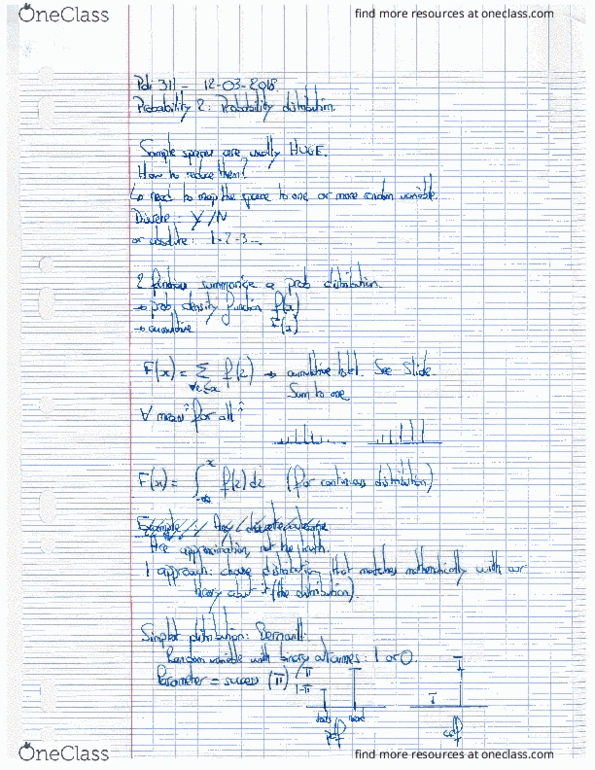 OneClass
find more resources at oneclass.com
Poli 311 - 12-03-2018
Probability 2: Probability distribution
Sample spaces are usually HUGE.
How to reduce them?
↳ need to map the space to one or more random variable.
Discrete: Y/N
or absolute: 1-2-3...
2 functions summarize a prob distribution
→ prob density function f(x)
→ cumulative F(x)
F(x) = Σ f(z) → cumulative total. See Slide.
∀z≤x Sum to one
∀ mean "for all"
F(x) = ∫ f(z) dz (for continuous distribution)
x
-∞
Are approximation, not the truth.
1 approach: choose distribution that matches mathematically with our
theory about it (the distribution).
Simplest distribution: Bernoulli.
Random variable with binary outcomes: 1 or 0.
Parameter = success (π)
π
1-π
pdf
cdf
OneClass
find more resources at oneclass.com